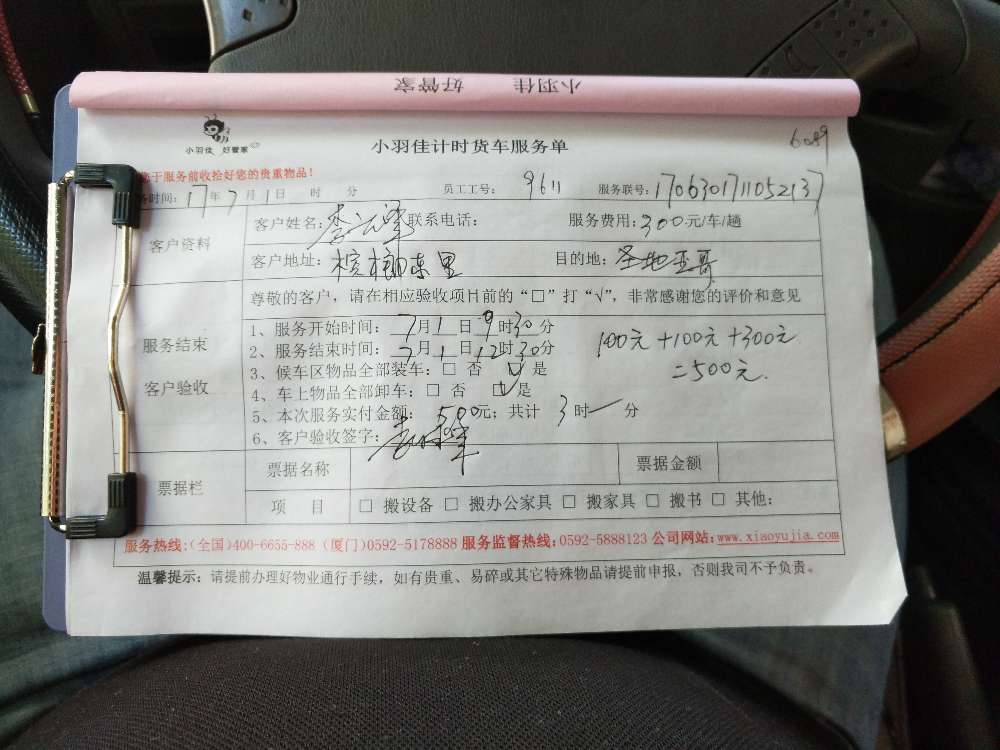 小羽佳 好管家
小羽佳 好管家
小羽佳计时货车服务单
6089
于服务前收拾好您的贵重物品！
务时间：17年7月1日 时 分 员工工号：9611 服务联号：1706301711052137
客户资料
客户姓名： 联系电话： 服务费用：300元/车/趟
客户地址：槟榔东里 目的地：圣地亚哥
尊敬的客户，请在相应验收项目前的“□”打“√”，非常感谢您的评价和意见
服务结束
客户验收
1、服务开始时间：7月1日9时30分
2、服务结束时间：7月1日12时30分
3、候车区物品全部装车：□ 否 ☑ 是
4、车上物品全部卸车：□ 否 ☑ 是
5、本次服务实付金额：500元；共计 3时一分
6、客户验收签字：
100元+100元+300元
=500元.
票据栏
票据名称 票据金额
项 目 □ 搬设备 □ 搬办公家具 □ 搬家具 □ 搬书 □ 其他：
服务热线：(全国)400-6655-888 (厦门)0592-5178888 服务监督热线：0592-5888123 公司网站：www.xiaoyujia.com
温馨提示：请提前办理好物业通行手续，如有贵重、易碎或其它特殊物品请提前申报，否则我司不予负责。